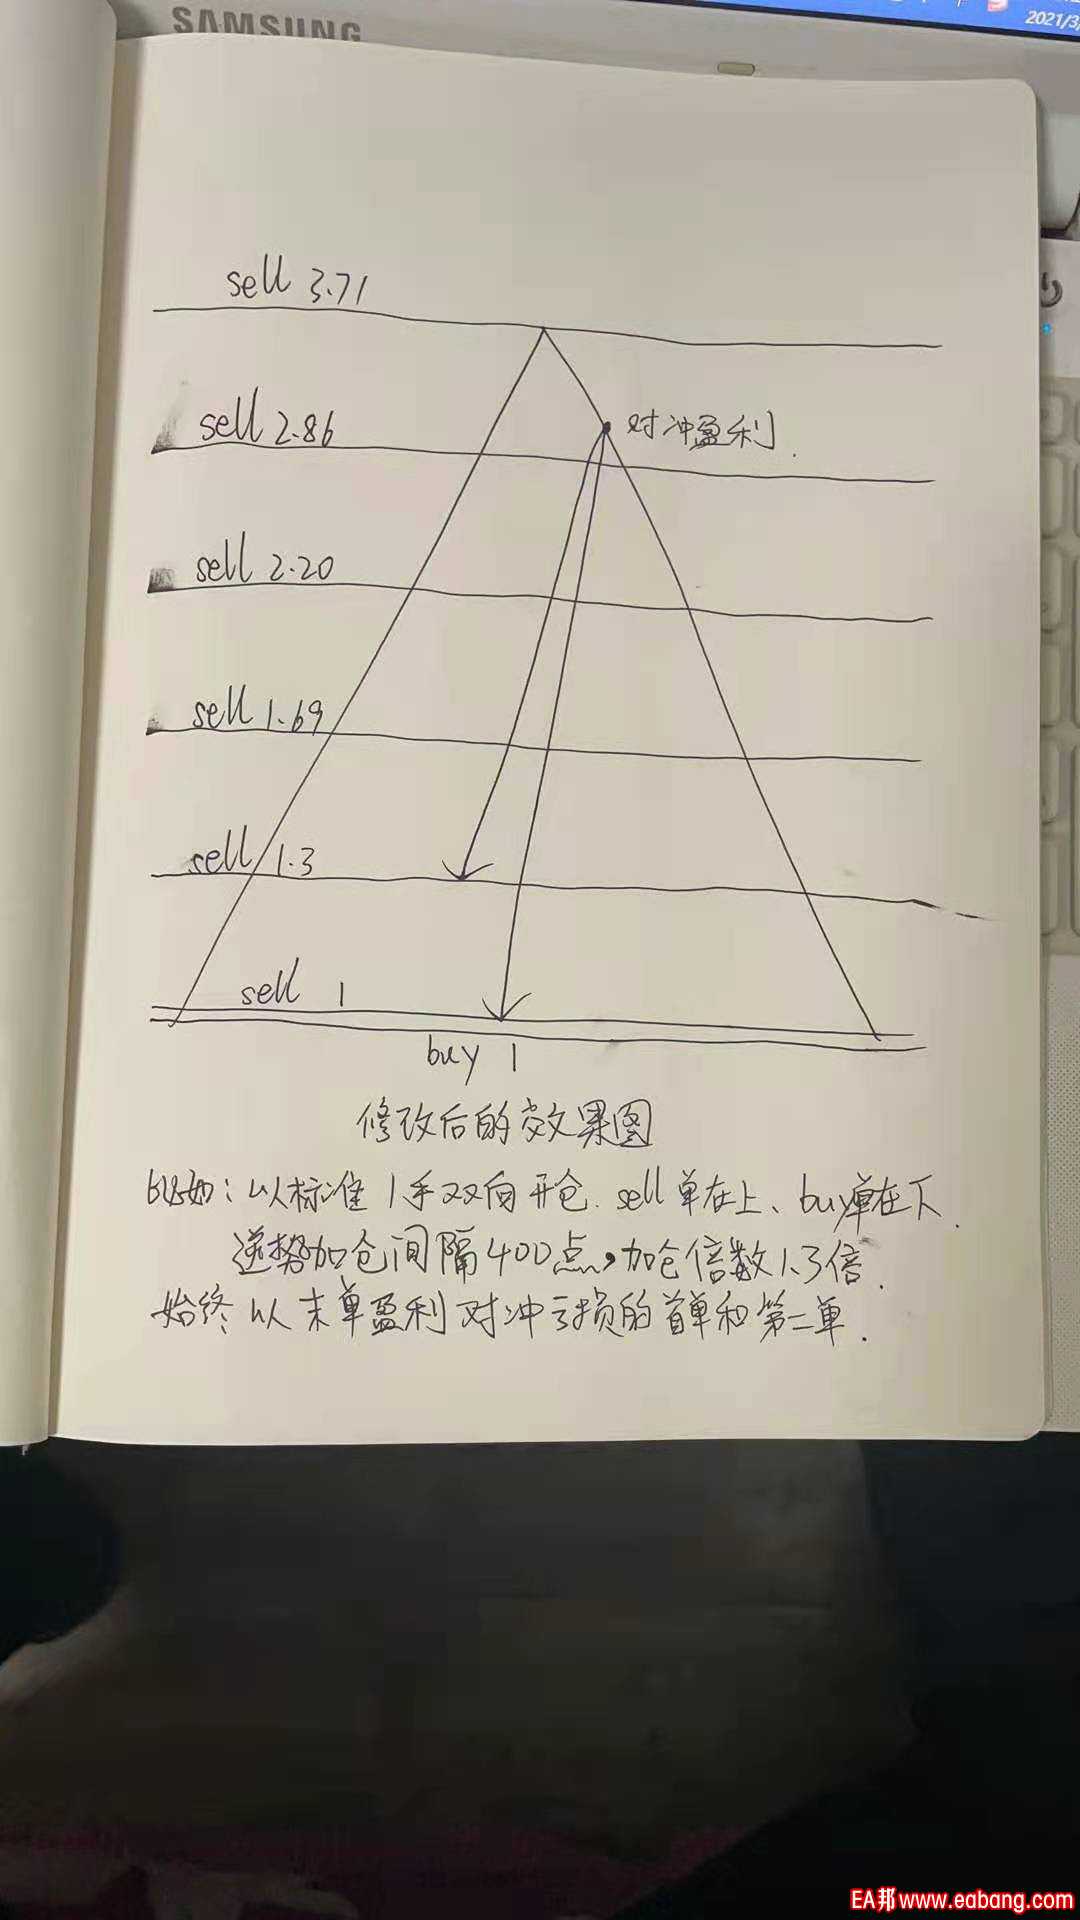 SAMSUNG
2021/3/
sell 3.71
sell 2.86
对冲盈利.
sell 2.20
sell 1.69
sell 1.3
sell 1
buy 1
修改后的效果图
比如：以标准1手双向开仓.sell单在上、buy单在下.
逆势加仓间隔400点,加仓倍数1.3倍.
始终以末单盈利对冲亏损的首单和第二单.
EA邦 www.eabang.com